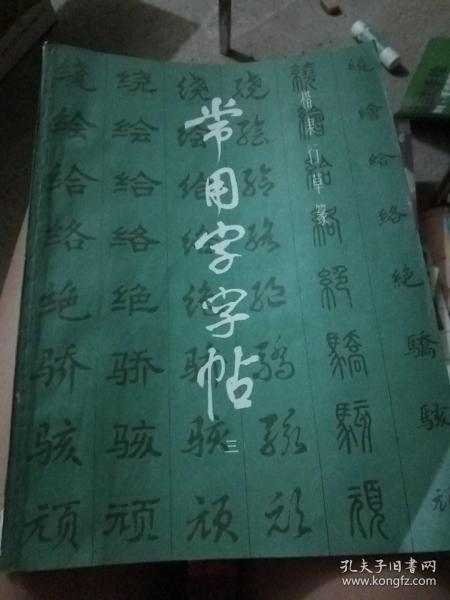 常用字字帖
三
楷隶行草篆
绕 绕 绕 绕 繞 繞
绘 绘 绘 绘 繪 繪
给 给 给 给 給 給
络 络 络 络 絡 絡
绝 绝 绝 绝 絕 絶
骄 骄 骄 骄 驕 驕
骇 骇 骇 骇 駭 駭
顽 顽 顽 顽 頑
孔夫子旧书网
www.kongfz.com